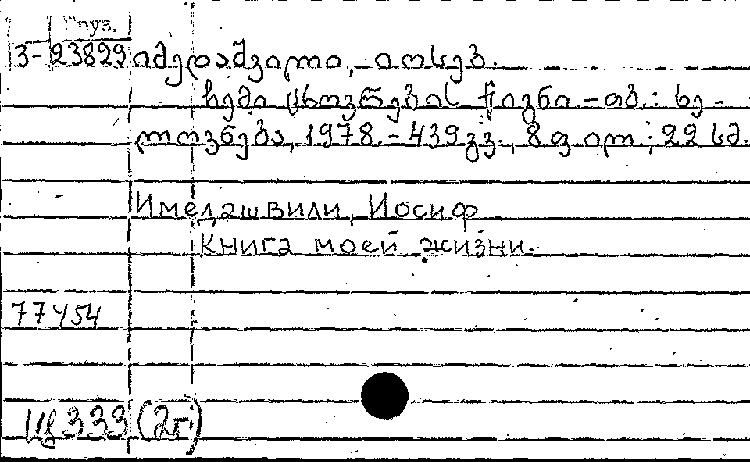 Груз.
3-23829
იმედაშვილი, იოსებ.
ჩემი ცხოვრების წიგნი. - თბ.: ხე-
ლოვნება, 1978. - 439 გვ., 8 ფ. ილ.; 22 სმ.
Имедашвили, Иосиф
Книга моей жизни.
77454